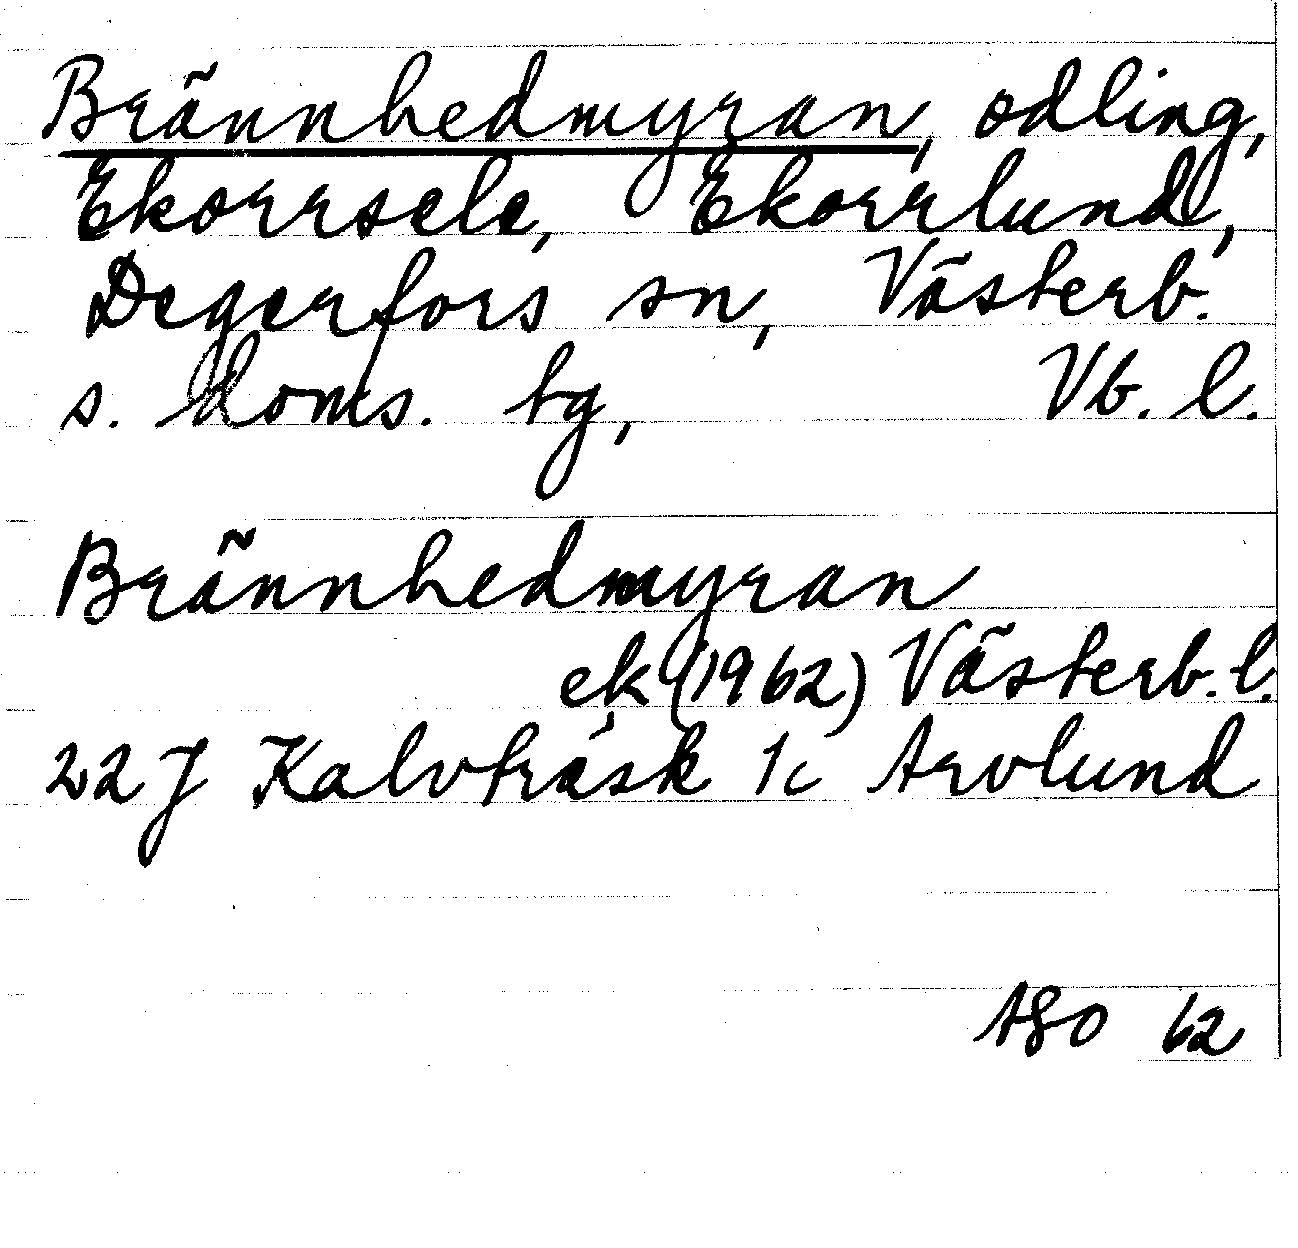 Brännhedmyran, odling,
Ekorrsele, Ekorrlund,
Degerfors sn, Västerb.
s. doms. tg, Vb. l.
Brännhedmyran
ek (1962) Västerb. l.
22 J Kalvträsk 1c Arvlund
ASO 62